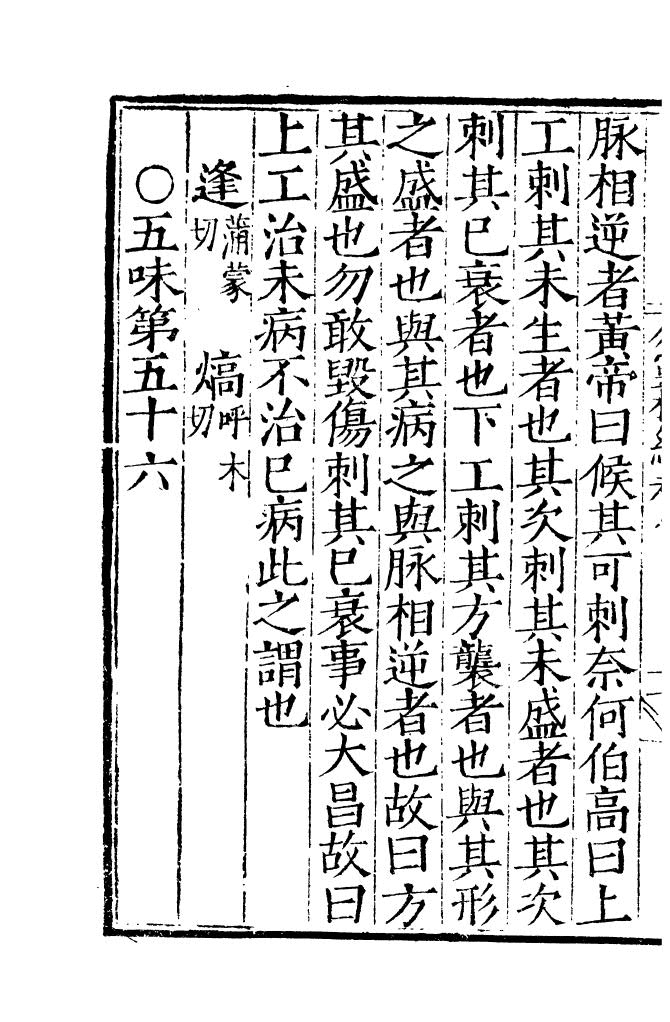 脉相逆者黃帝曰候其可刺奈何伯高曰上
工刺其未生者也其次刺其未盛者也其次
刺其已衰者也下工刺其方襲者也與其形
之盛者也與其病之與脉相逆者也故曰方
其盛也勿敢毀傷刺其已衰事必大昌故曰
上工治未病不治已病此之謂也
逢蒲蒙切 熇呼木切
○五味第五十六